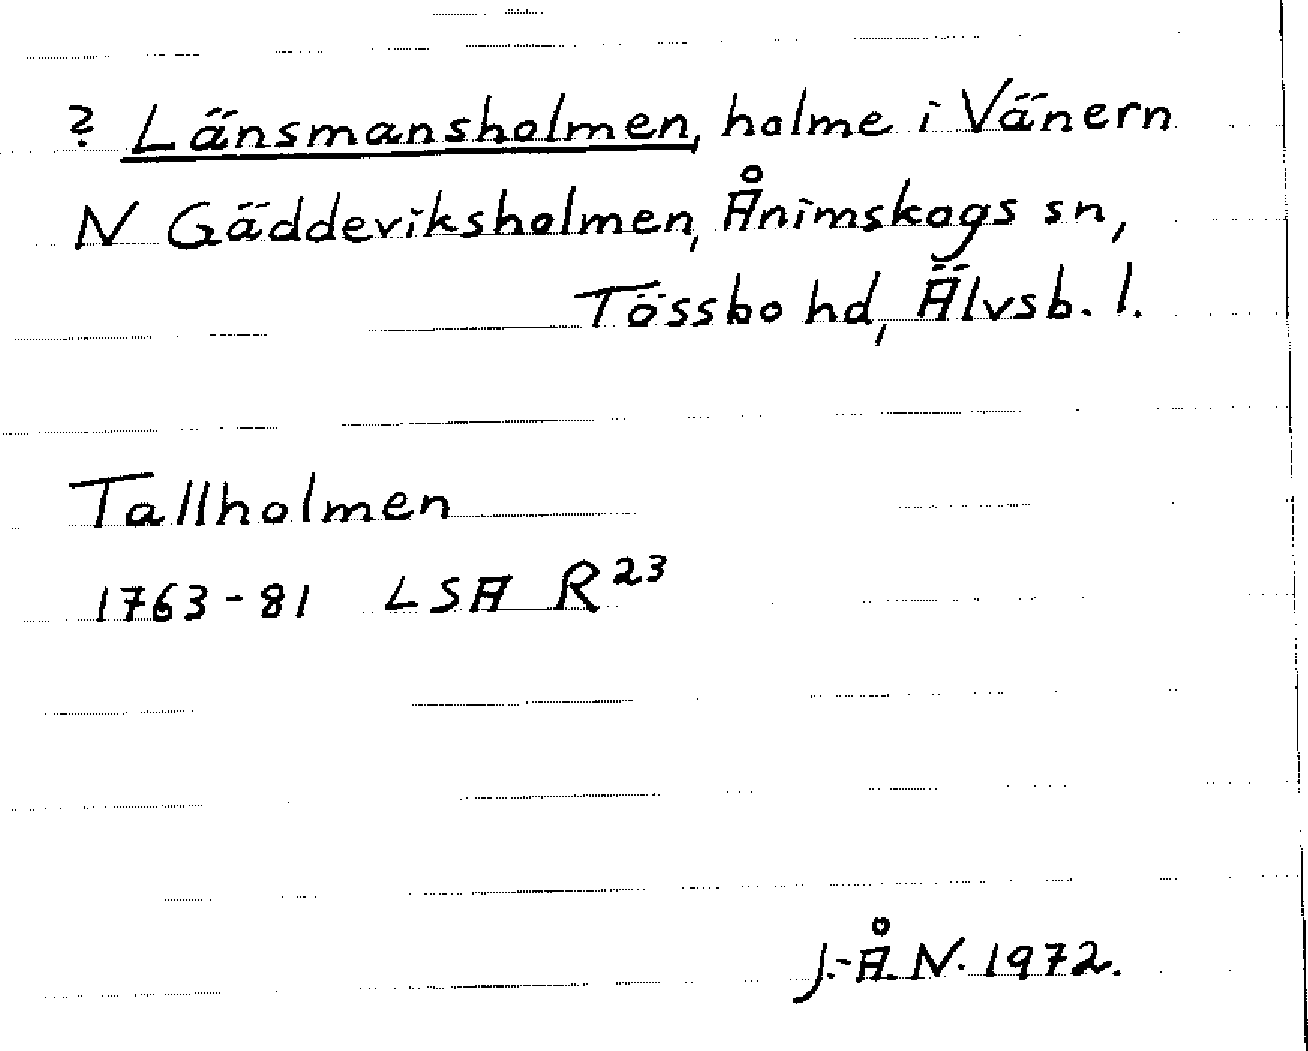 ? Länsmansholmen, holme i Vänern
N Gäddeviksholmen, Ånimskogs sn,
Tössbo hd, Älvsb. l.
Tallholmen
1763-81 LSA R 23
J.-Å. N. 1972.